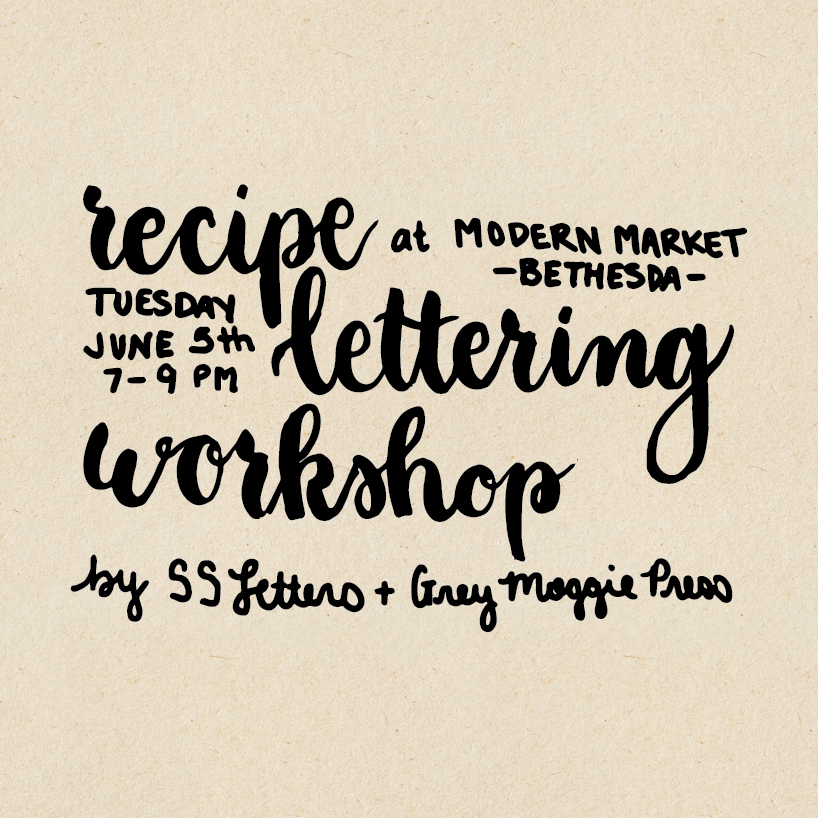 recipe at MODERN MARKET
-BETHESDA-
TUESDAY
JUNE 5th
7-9 PM
lettering
workshop
by SS Letters + Grey Moggie Press